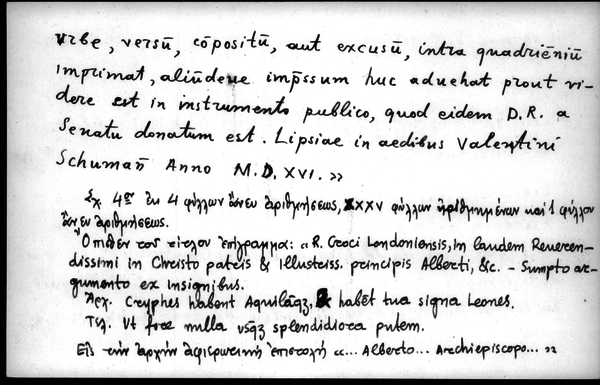 urbe, versū, cōpositū, aut excusū, intra quadriēniū
imprimat, aliūdeue imp̄ssum huc aduehat prout vi-
dere est in instrumento publico, quod eidem D.R. a
Senatu donatum est. Lipsiae in aedibus Valentini
Schumañ Anno M.D.XVI.»
Σχ. 4ον ἐκ 4 φύλλων ἄνευ ἀριθμήσεως, XXXV φύλλων ἠριθμημένων καὶ 1 φύλλου
ἄνευ ἀριθμήσεως.
Ὄπισθεν τοῦ τίτλου ἐπίγραμμα: «R. Croci Londoniensis, in laudem Reueren-
dissimi in Christo patris & Illustriss. principis Alberti, &c. - Sumpto ar-
gumento ex insignibus.
Ἀρχ. Cryphes habent Aquilāq3, & habēt tua signa Leones.
Τελ. Ut fore nulla usq3 splendidiora putem.
Εἰς τὴν ἀρχὴν ἀφιερωτικὴ ἐπιστολὴ «... Alberto... Archiepiscopo... »